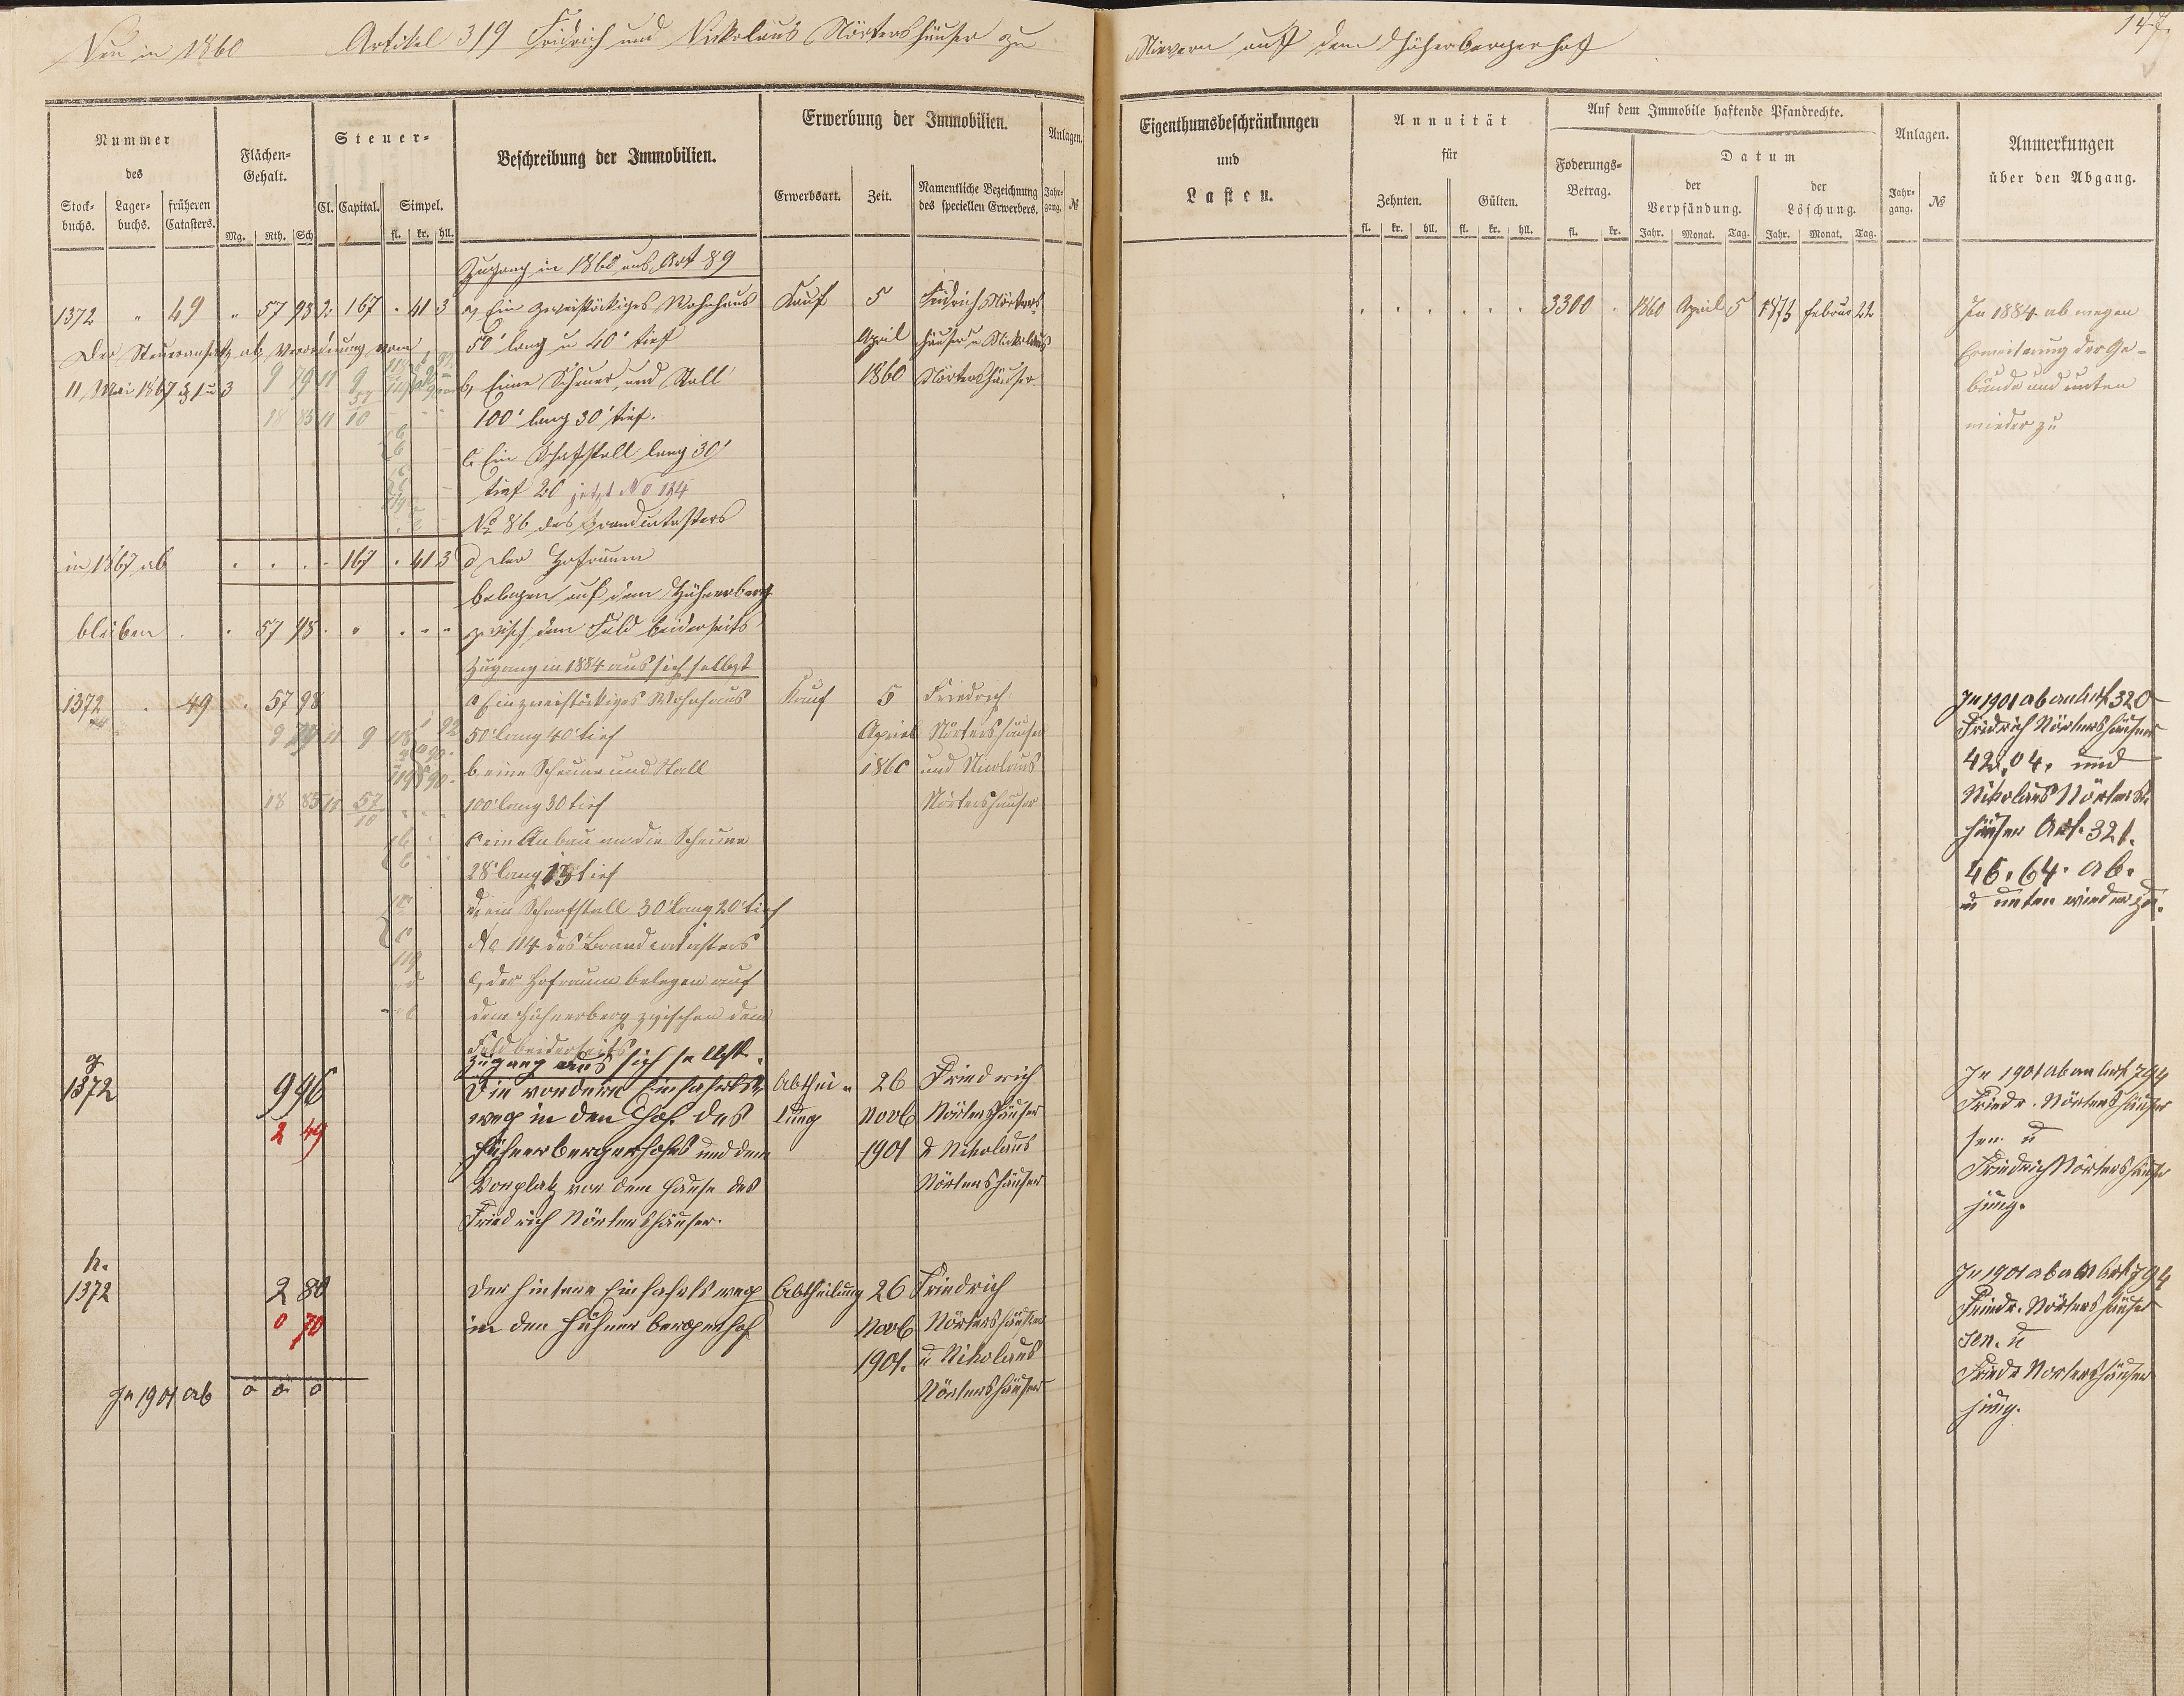 Neu in 1860 Artikel 319 Fridrich und Nickolaus Nörtershäuser zu
Nievern auf dem Hühnerbergerhof
147
Nummer
des
Stock-
buchs.
Lager-
buchs.
früheren
Catasters.
Flächen-
Gehalt.
Mg. Rth. Sch
Steuer-
Cl. Capital. Simpel.
fl. kr. hll.
Beschreibung der Immobilien.
Erwerbung der Immobilien.
Erwerbsart. Zeit.
Namentliche Bezeichnung
des speciellen Erwerbers.
Anlagen.
Jahr-
gang. №
Eigenthumsbeschränkungen
und
Lasten.
Annuität
für
Zehnten. Gülten.
fl. kr. hll. fl. kr. hll.
Auf dem Immobile haftende Pfandrechte.
Foderungs-
Betrag.
fl. kr.
Datum
der
Verpfändung.
der
Löschung.
Jahr. Monat. Tag. Jahr. Monat. Tag.
Anlagen.
Jahr-
gang. №
Anmerkungen
über den Abgang.
Zugang in 1860 aus Art 89
1372 " 49 " 57 98 2. 167 . 41 3 a, Ein zweistöckiges Wohnhaus Kauf 5 Fridrich Nörters-
3300 . 1860 April 5 1875 Februar 22 In 1884 ab wegen
Der Steueransatz ab Verordnung vom 50' lang u 40' tief April häuser u Nickolaus
Erweiterung der Ge-
11. Mai 1867 § 1 u 3 9 79 11 9 b, Eine Scheuer und Stall 1860 Nörtershäuser
bäude und unten
18 85 11 57/10 100' lang 30' tief.
wieder zu
c. Ein Schafstall lang 30'
tief 20 jetzt No 134
No 86 des Brandcatasters
in 1867 ab . . . . 167 . 41 3 d Der Hofraum
belegen auf dem Hühnerberg
bleiben . . 57 98 . " . " " zwisch dem Feld beiderseits
Zugang in 1884 aus sich selbst
1372 . 49 . 57 98 a Ein zweistöckiges Wohnhaus Kauf 5 Friedrich
In 1901 ab an Art. 320
9 79 11 9 50' lang 40' tief April Nörtershäuser
Fridrich Nörtershäuser
b. eine Scheune und Stall 1860 und Nicolaus
42.04. und
18 85 11 57/10 100' lang 30 tief Nörtershäuser
Nikolaus Nörters-
c ein Anbau an die Scheune
häuser Art. 321.
28' lang 13 tief
46.64. ab.
d. ein Schafstall 30' lang 20' tief
u unten wieder zu.
No 114 des Brandcatasters
e, der Hofraum belegen auf
dem Hühnerberg zwischen dem
Feld beiderseits
Zugang aus sich selbst.
g
1372 9 96 Die vordere Einfahrts- Abthei- 26 Friedrich
In 1901 ab an Art 794
2 49 weg in den Hof des lung Novb Nörtershäuser
Friedr. Nörtershäuser
Hühnerbergerhofes und dem 1901 u Nikolaus
sen. u
Vorplatz vor dem Hause des Nörtershäuser
Friedrich Nörtershäuser
Friedrich Nörtershäuser.
jung.
h.
1372 2 80 Der hintere Einfahrtsweg Abtheilung 26 Friedrich
In 1901 ab an Art 794
0 70 in den Hühnerbergerhof Novb Nörtershäuser
Friedr. Nörtershäuser
1901. u Nikolaus
sen. u
In 1901 ab 0 0 0 Nörtershäuser
Friedr Nörtershäuser
jung.